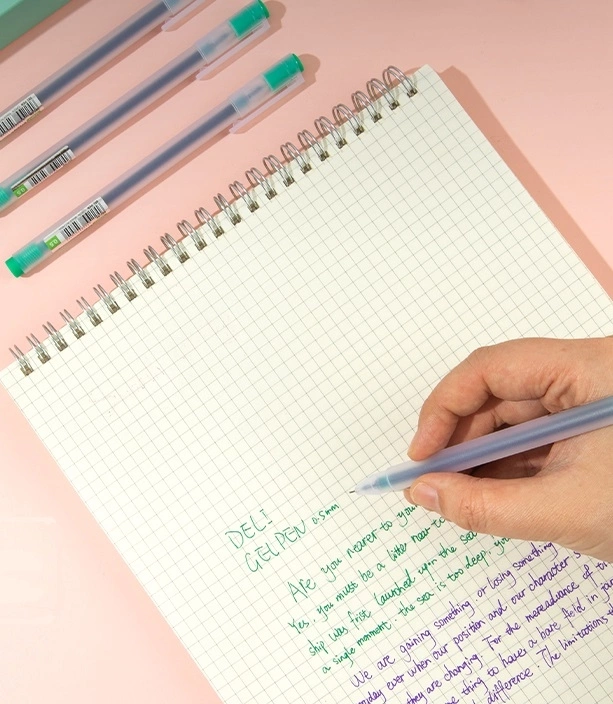 DELI
GELPEN 0.5mm
Are you nearer to your
Yes. you must be a little near to
ship was frist launched upon the sea
a single monment. the sea is too deep, you
We are gaining something or losing something
day ever when our position and our character
they are changing. For the mereadvance of
thing to have a bare field in
difference. The limitations